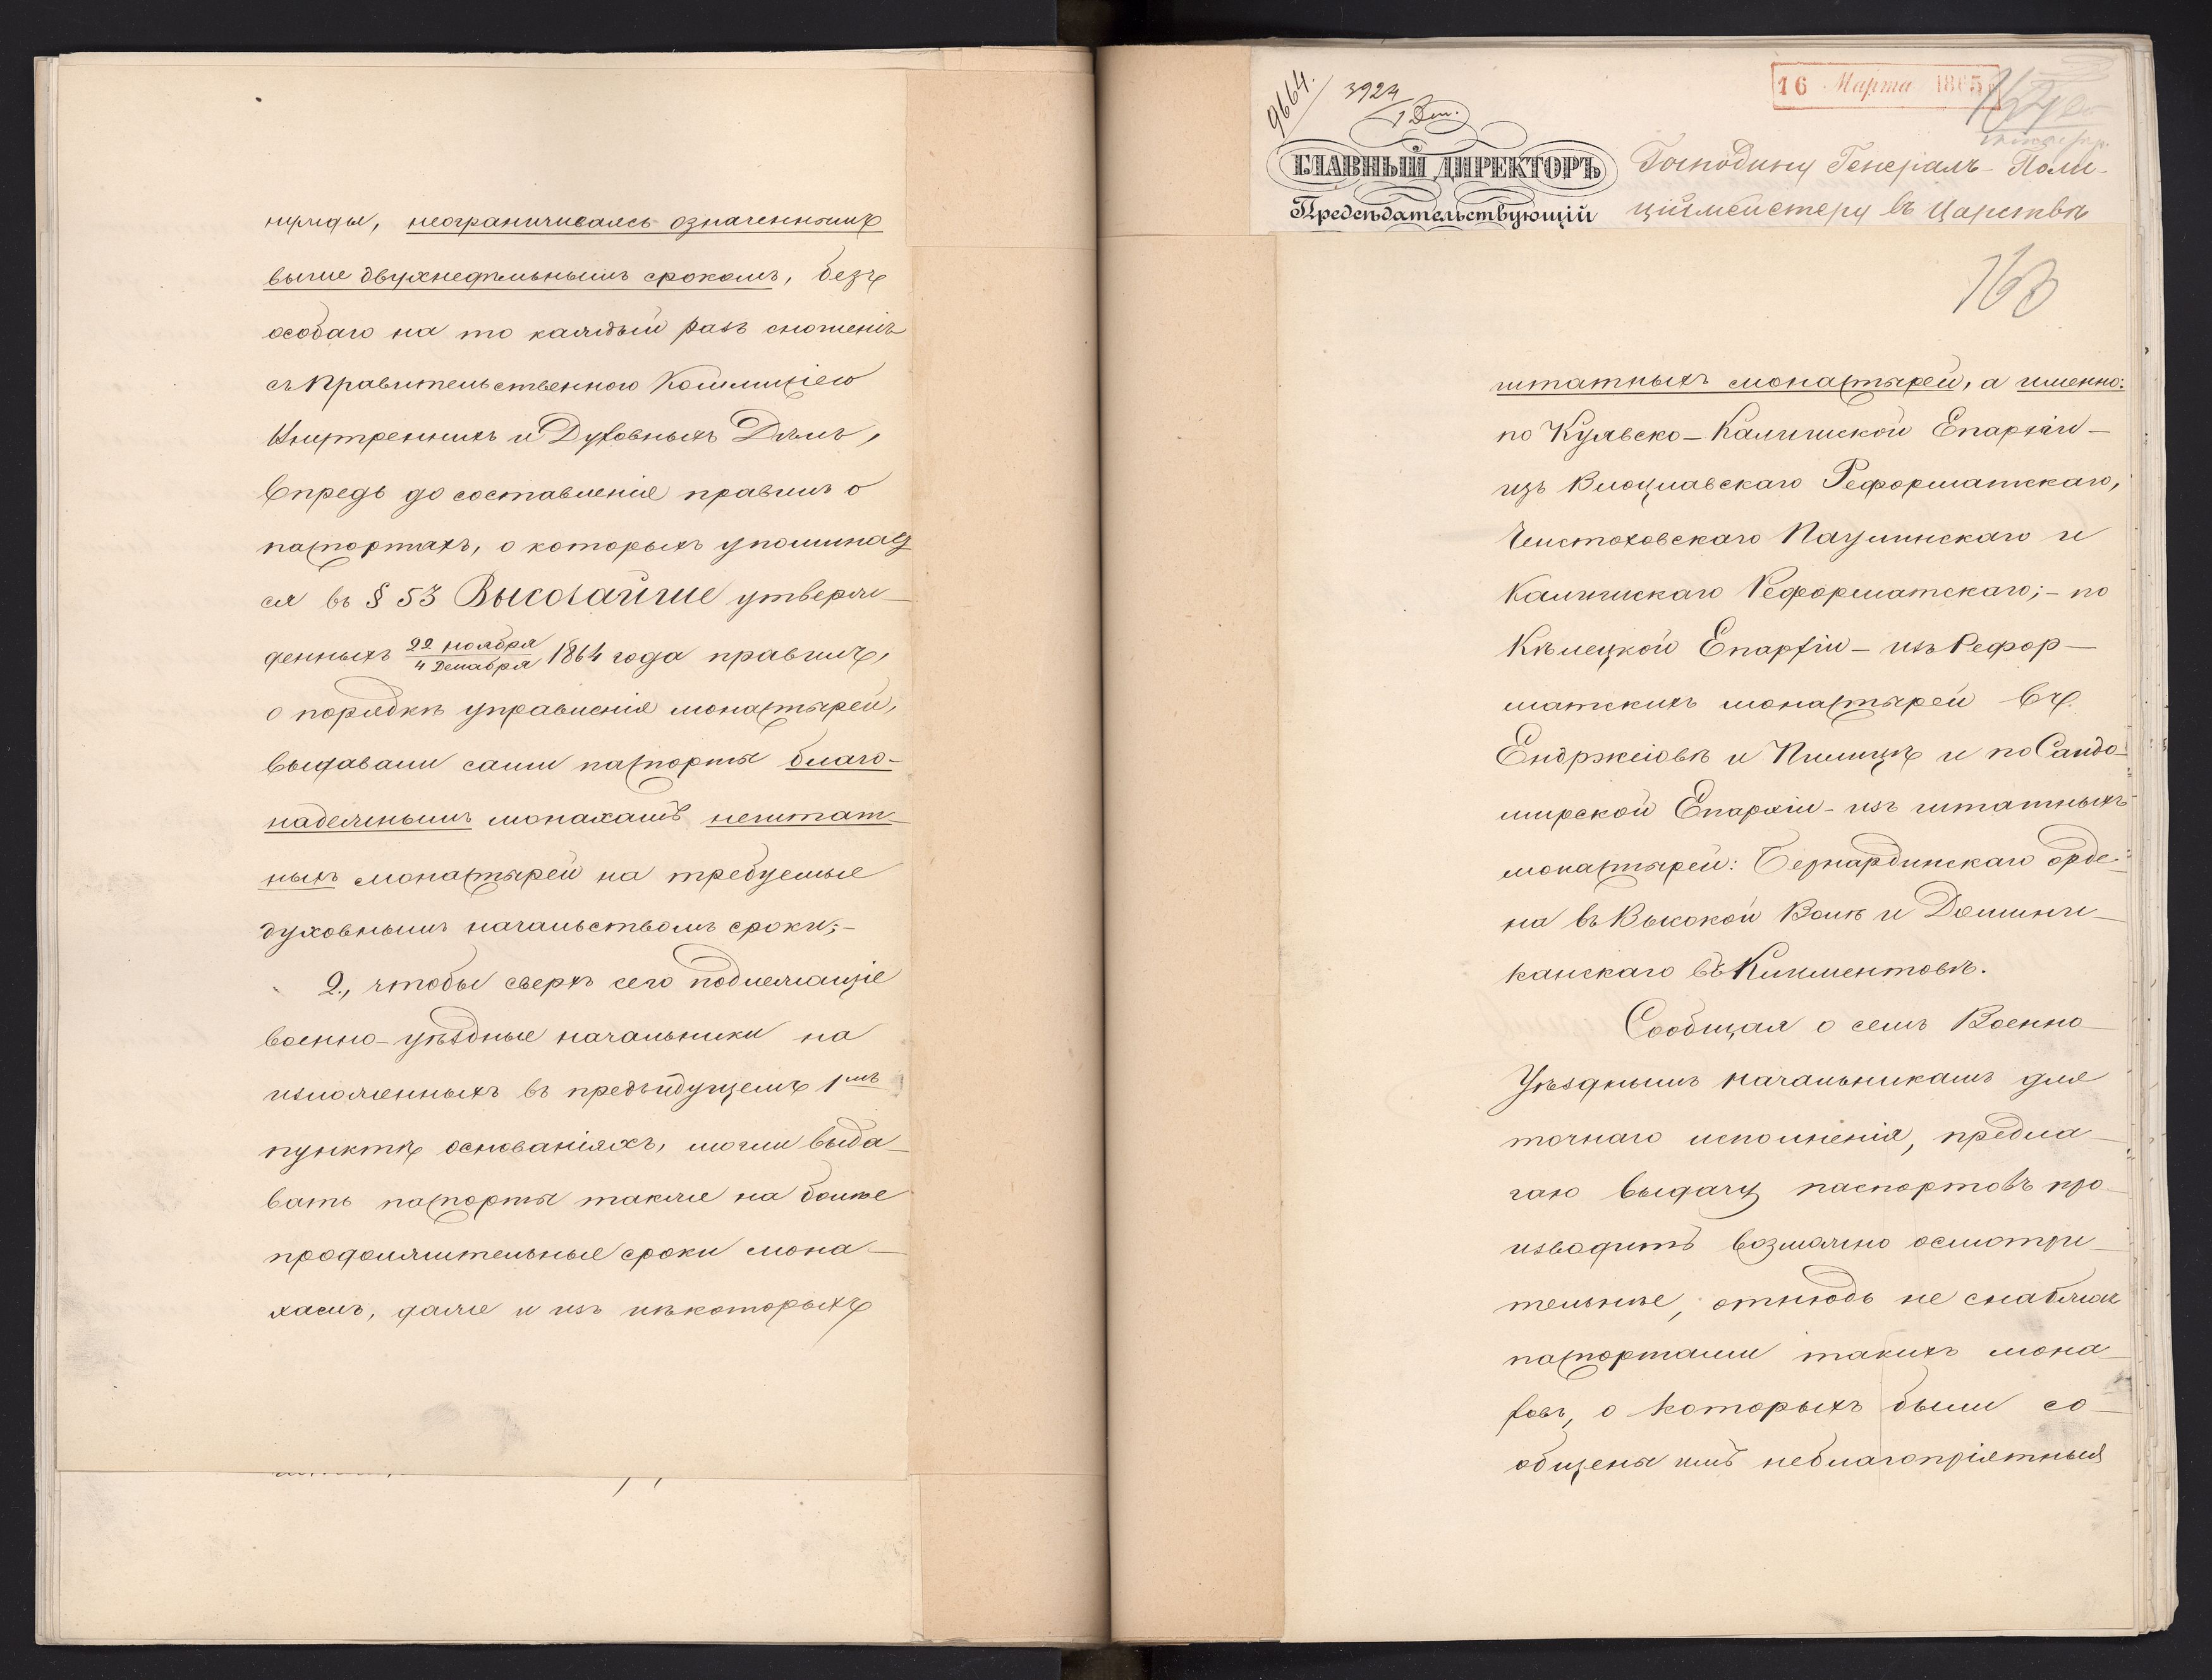 нужды, неограничиваясь означеннымъ
выше двухнедѣльнымъ срокомъ, безъ
особаго на то каждый разъ сношенія
съ Правительственною Коммисіею
Внутреннихъ и Духовныхъ Дѣлъ,
впредь до составленія правилъ о
паспортахъ, о которыхъ упоминает
ся въ § 53 Высочайше утверж-
денныхъ 22 ноября / 4 Декабря 1864 года правилъ,
о порядкѣ управленія монастырей,
выдавали сами паспорты благо-
надежнымъ монахамъ нештат-
ныхъ монастырей на требуемые
духовнымъ начальствомъ сроки;-
2., чтобы сверхъ сего подлежащіе
военно-уѣздные начальники на
изложенныхъ въ предъидущемъ 1мъ
пунктѣ основаніяхъ, могли выда-
вать паспорты также на болѣе
продолжительные сроки мона-
хамъ, даже и изъ нѣкоторыхъ
9664.
3924
1 Дек.
16 Марта 1865
ГЛАВНЫЙ ДИРЕКТОРЪ
Предсѣдательствующій
Господину Генералъ-Поли-
ціймейстеру въ Царствѣ
163
штатныхъ монастырей, а именно:
по Куявско-Калишской Епархіи-
изъ Влоцлавскаго Реформатскаго,
Ченстоховскаго Паулинскаго и
Калишскаго Реформатскаго;- по
Кѣлецкой Епархіи - изъ Рефор-
матскихъ монастырей въ
Енджеіовѣ и Пилицѣ и по Сандо-
мирской Епархіи - изъ штатныхъ
монастырей: Бернардинскаго орде-
на въ Высокой Волѣ и Домини-
канскаго въ Климентовѣ.
Сообщая о семъ Военно-
Уѣзднымъ Начальникамъ для
точнаго исполненія, предла-
гаю выдачу паспортовъ про-
изводить возможно осмотри-
тельнѣе, отнюдь не снабжая
паспортами такихъ мона-
ховъ, о которыхъ были со-
общены имъ неблагопріятныя